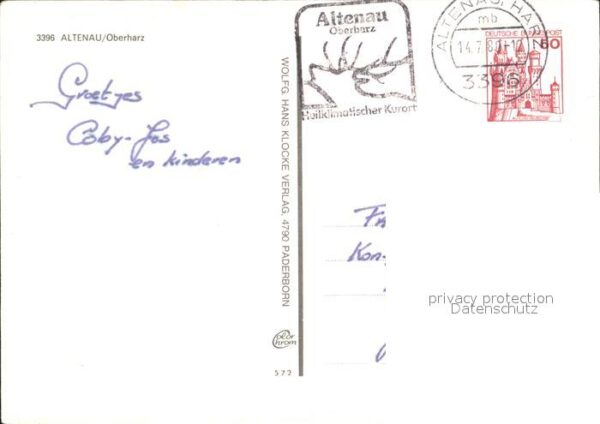 3396 ALTENAU/Oberharz
Groetjes
Coby-Jos
en kinderen
WOLFG. HANS KLOCKE VERLAG, 4790 PADERBORN
Color
Chrom
572
Altenau
Oberharz
Heilklimatischer Kurort
ALTENAU, HARZ
mb
3396
DEUTSCHE BUNDESPOST
60
privacy protection
Datenschutz